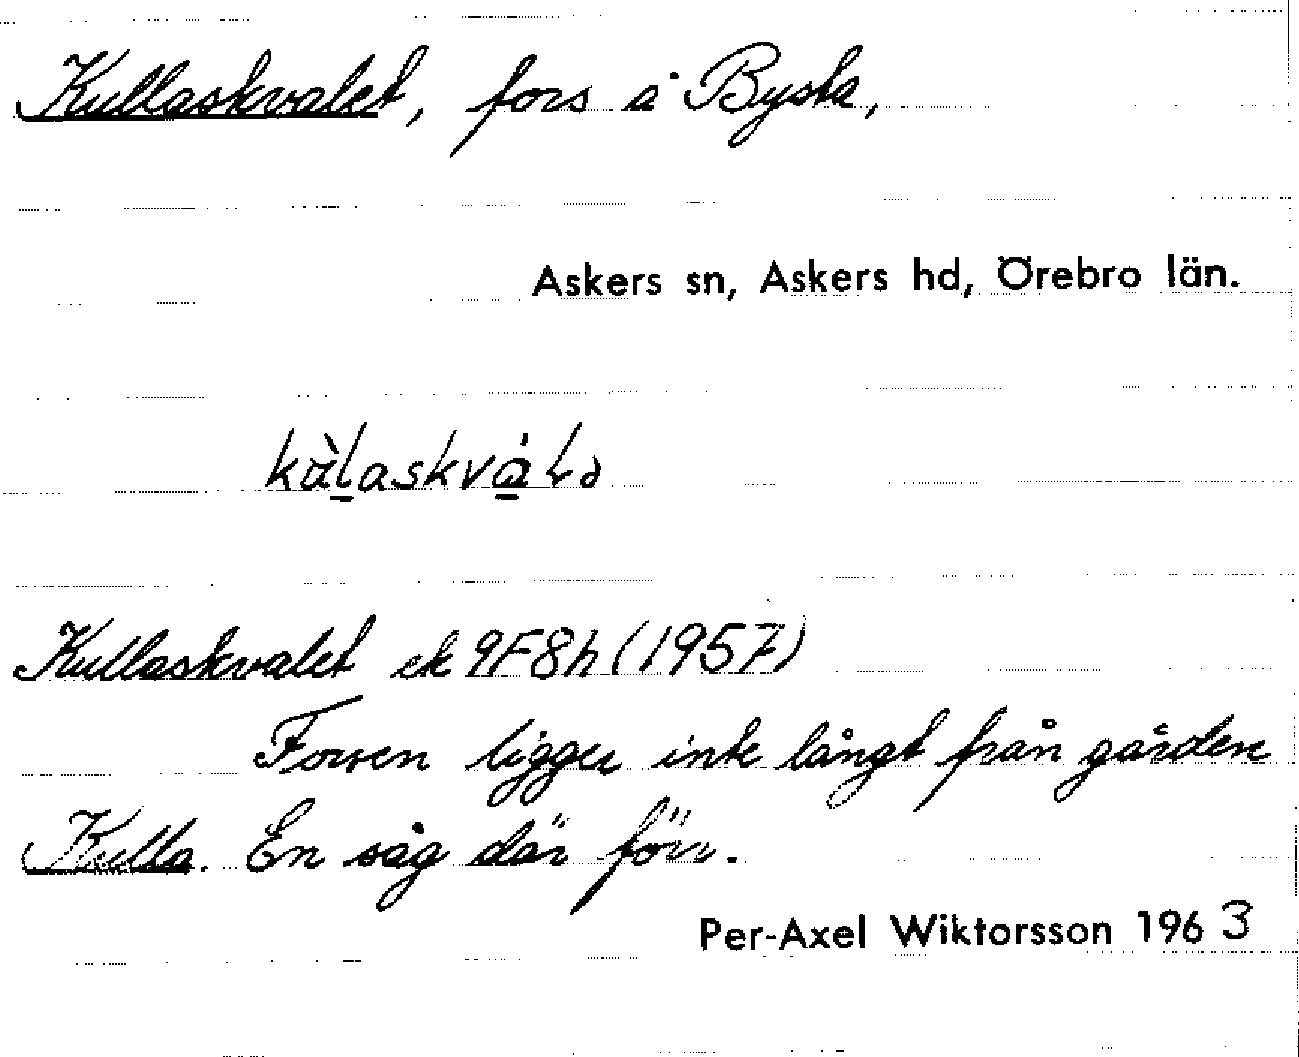 Kullaskvalet, fors å Bysta,
Askers sn, Askers hd, Örebro län.
Kullaskvalet ek 9F8h (1957)
Forsen ligger inte långt från gården
Kulla. En såg där förr.
Per-Axel Wiktorsson 1963